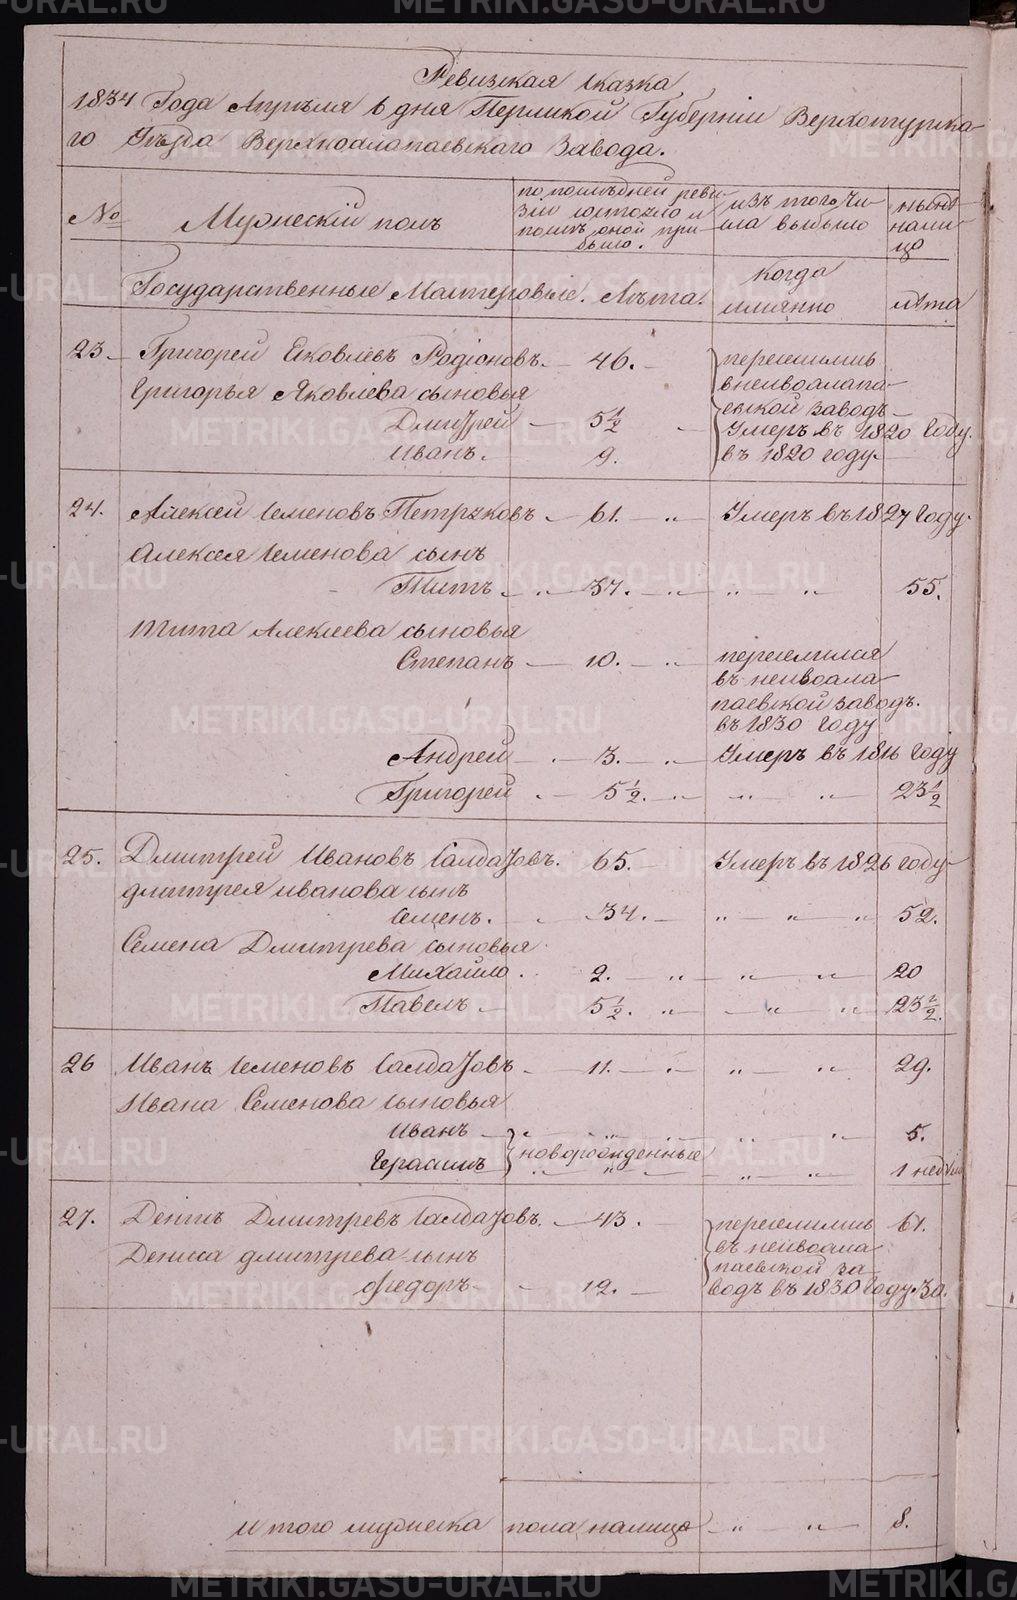 Ревизская сказка
1834 Года Апрѣля 6 дня Пермской Губерніи Верхотурска-
го Уѣзда Верхноалапаевскаго Завода.
№ Мужескій полъ
по послѣдней реви-
зіи состояло и
послѣ оной при-
было.
изъ того чи-
сла выбыло
нынѣ
на ли
цо
Государственные Мастеровые. Лѣта.
когда
имянно
лѣта
23 Григорей Яковлевъ Родіоновъ. 46. переселились
в нейвоалапа-
евской заводъ
Григорья Яковлева сыновья
Дмитрей 5½ Умеръ въ 1820 Году.
Иванъ. 9. въ 1820 году.
24. Алексей Семеновъ Петраковъ 61. „ Умеръ въ 1827 Году.
Алексея Семенова сынъ
Титъ „ 37. „ „ „ 55.
Тита Алексеева сыновья
Степанъ 10. „ переселился
въ нейвоала
паевской заводъ.
въ 1830 Году
Андрей 3. „ Умеръ въ 1816 Году
Григорей 5½. „ „ „ 23½
25. Дмитрей Ивановъ Салдатовъ. 65. Умеръ въ 1826 году
Дмитрея иванова сынъ
Семенъ. 34. „ „ „ 52.
Семена Дмитрева сыновья
Михайло. 2. „ „ „ 20
Павелъ 5½. „ „ „ 23½.
26 Иванъ Семеновъ Салдатовъ 11. „ „ 29.
Ивана Семенова сыновья
Иванъ „ „ 5.
Герасимъ новорожденные „ „ „ „ 1 недѣли
27. Денисъ Дмитревъ Салдатовъ. 43. переселились 61.
въ нейвоала
паевской за-
Дениса дмитрева сынъ
Федоръ 12. водъ въ 1830 Году. 30.
и того мужеска пола налицо „ „ 8.
METRIKI.GASO-URAL.RU